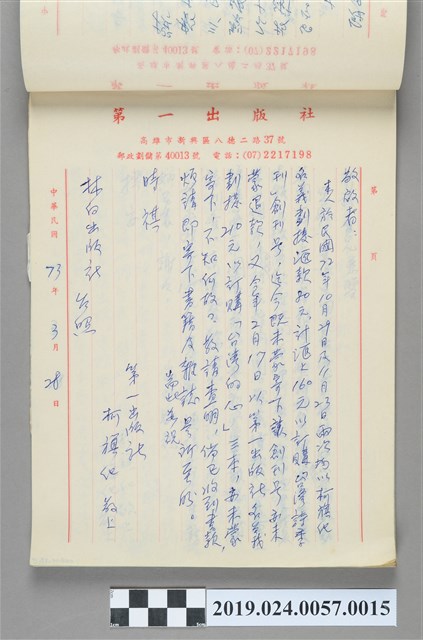 第一出版社
高雄市新興區八德二路37號
郵政劃儲第40013號 電話：(07)2217198
第 頁
敬啟者：
查於民國72年10月29日及11月23日兩次均以柯旗化
名義劃撥匯款80元計匯上160元以訂購台灣詩季
刊創刊號，迄今既未蒙寄下該創刊号亦未
蒙退款，又今年2月17日以第一出版社名義
劃撥210元以訂購「台灣的心」三本，亦未蒙
寄下，不知何故？敬請查明，倘已收到書款，
煩請即寄下書籍及雜誌是所至盼。
耑此敬祝
時祺
第一出版社
柯旗化 敬上
林白出版社 台照
中華民國 73 年 3 月 28 日
2019.024.0057.0015